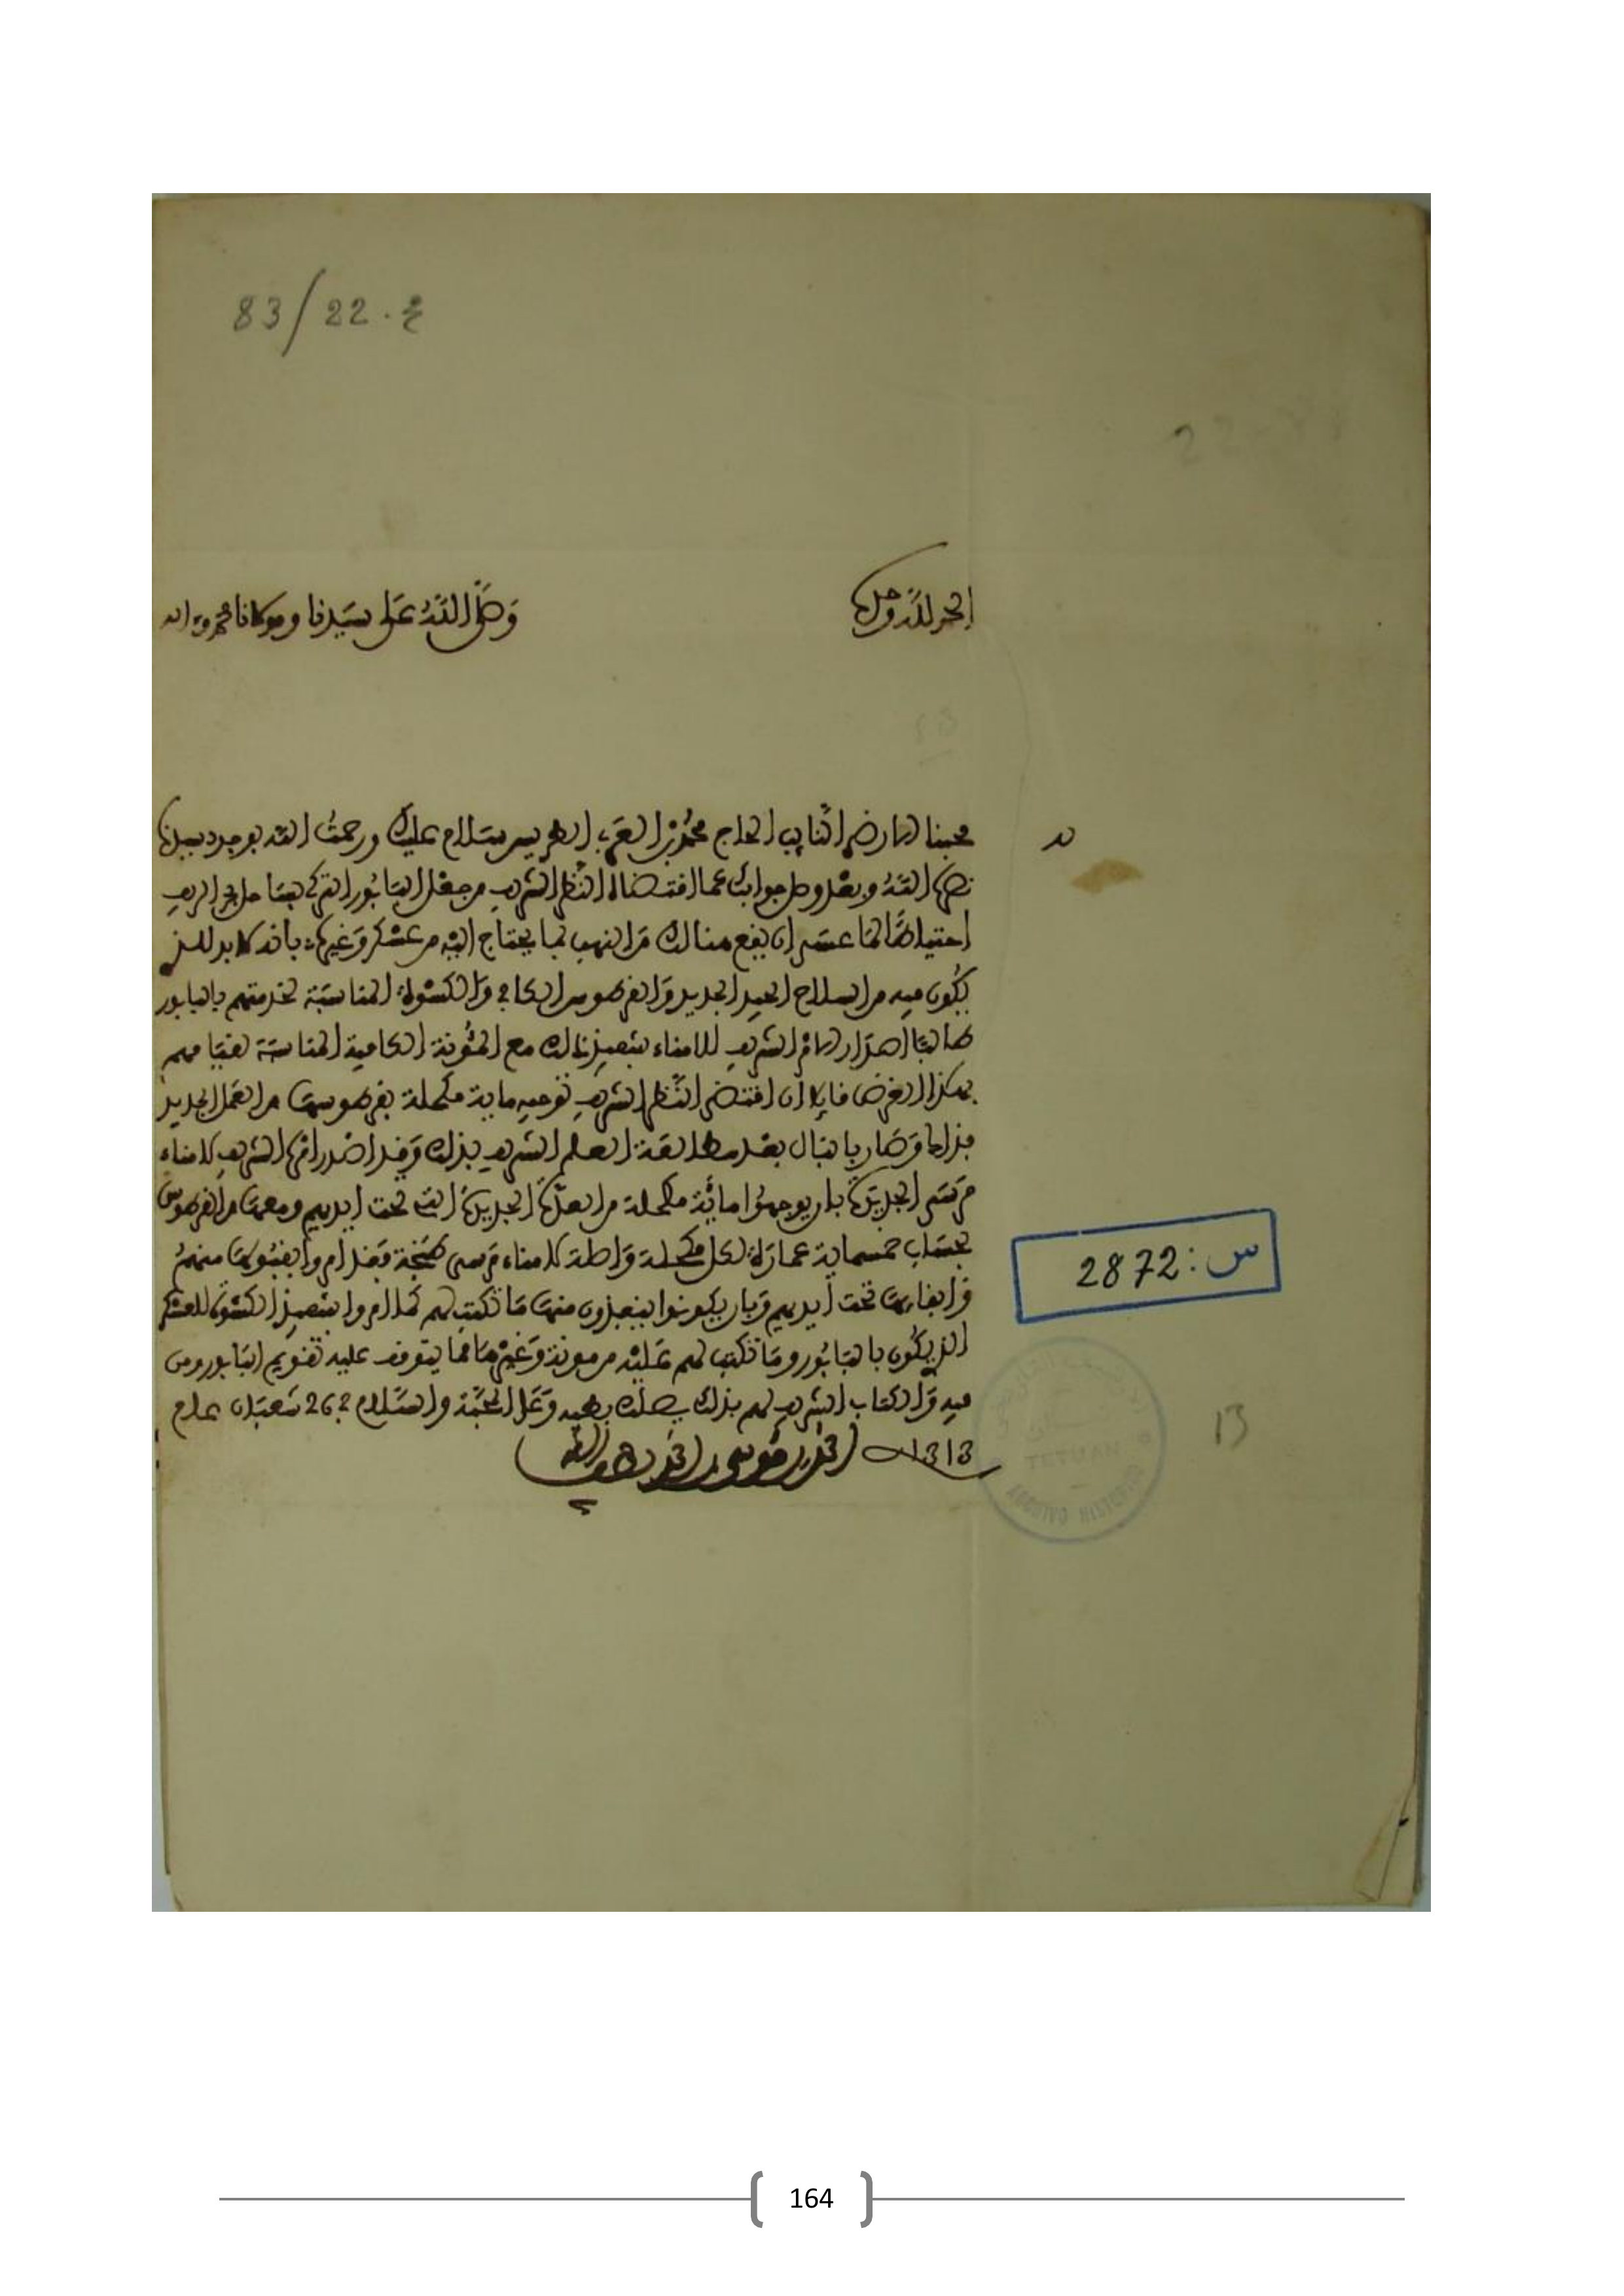 83/22.ع
22
الحمد لله وحده
وصلى الله على سيدنا ومولانا محمد وءاله
محبنا الارضى النايب الحاج محمد بن العربي الطريس سلام عليك ورحمت الله بوجود سيدنا
نصره الله وبعد وصل جوابك عما اقتضاه النظر الشريف من جعل البابور التركي بساحل الريف
احتياطا لما عسى ان يقع هنالك من النهب بما يحتاج اليه من عسكر وغيره بانه لا بد للذ
يكون فيه من السلاح الجيد الجديد والقرطوس الكافي والكسوة المناسبة لخدمتهم بالبابور
طالبا اصدار الامر الشريف للامناء بتنفيذ ذلك مع المئونة الكافية المناسبة لقيامهم
بهذا الغرض قايلا ان اقتضى النظر الشريف توجيه ماية مكحلة بقرطوسها من العمل الجديد
فذاك وصار بالبال بعد مطالعة العلم الشريف بذلك وقد اصدر امره الشريف لامناء
مرسى الجديدة بان يوجهوا مائة مكحلة من العدة الجديدة التي تحت ايديهم ومعها من القرطوس
بحساب خمسماية عمارة لكل مكحلة واحدة لامناء مرسى طنجة فقد امروا بقبولها منهم
وابقائها تحت ايديهم وبان يكونوا ينفذون منها ما تكتب لهم كما امروا بتنفيذ الكسوة للعسكر
الذ يكون بالبابور وما تكتب لهم عليه من مونة وغيرها مما يتوقف عليه تقويم البابور ومن
فيه والكتاب الشريف لهم بذلك يصلك طيه وعلى المحبة والسلام 26 شعبان عام
1313 احمد بن موسى بن احمد لطف الله به
س: 2872
TETUAN
ARCHIVO HISTORICO
13
164